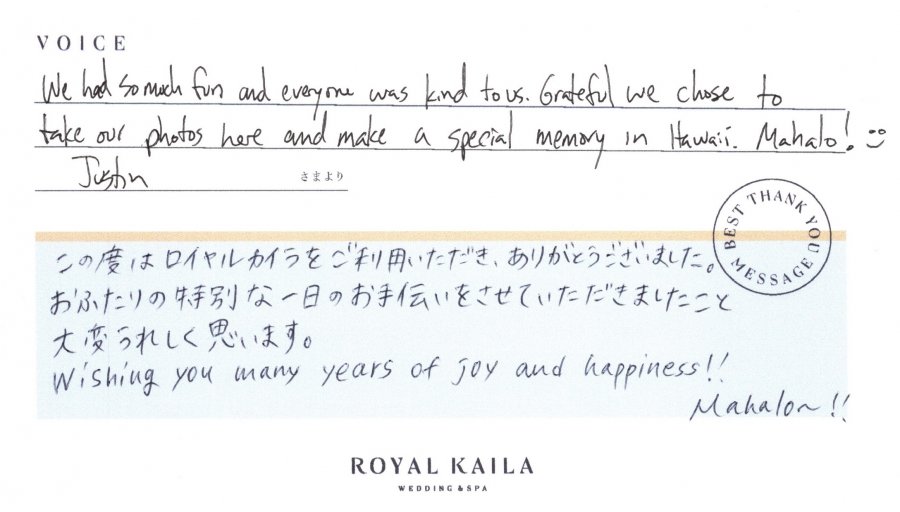 VOICE
We had so much fun and everyone was kind to us. Grateful we chose to
take our photos here and make a special memory in Hawaii. Mahalo! :)
Justin さまより
BEST THANK YOU MESSAGE
この度はロイヤルカイラをご利用いただき、ありがとうございました。
おふたりの特別な一日のお手伝いをさせていただきましたこと
大変うれしく思います。
Wishing you many years of joy and happiness!!
Mahalo~!!
ROYAL KAILA
WEDDING & SPA